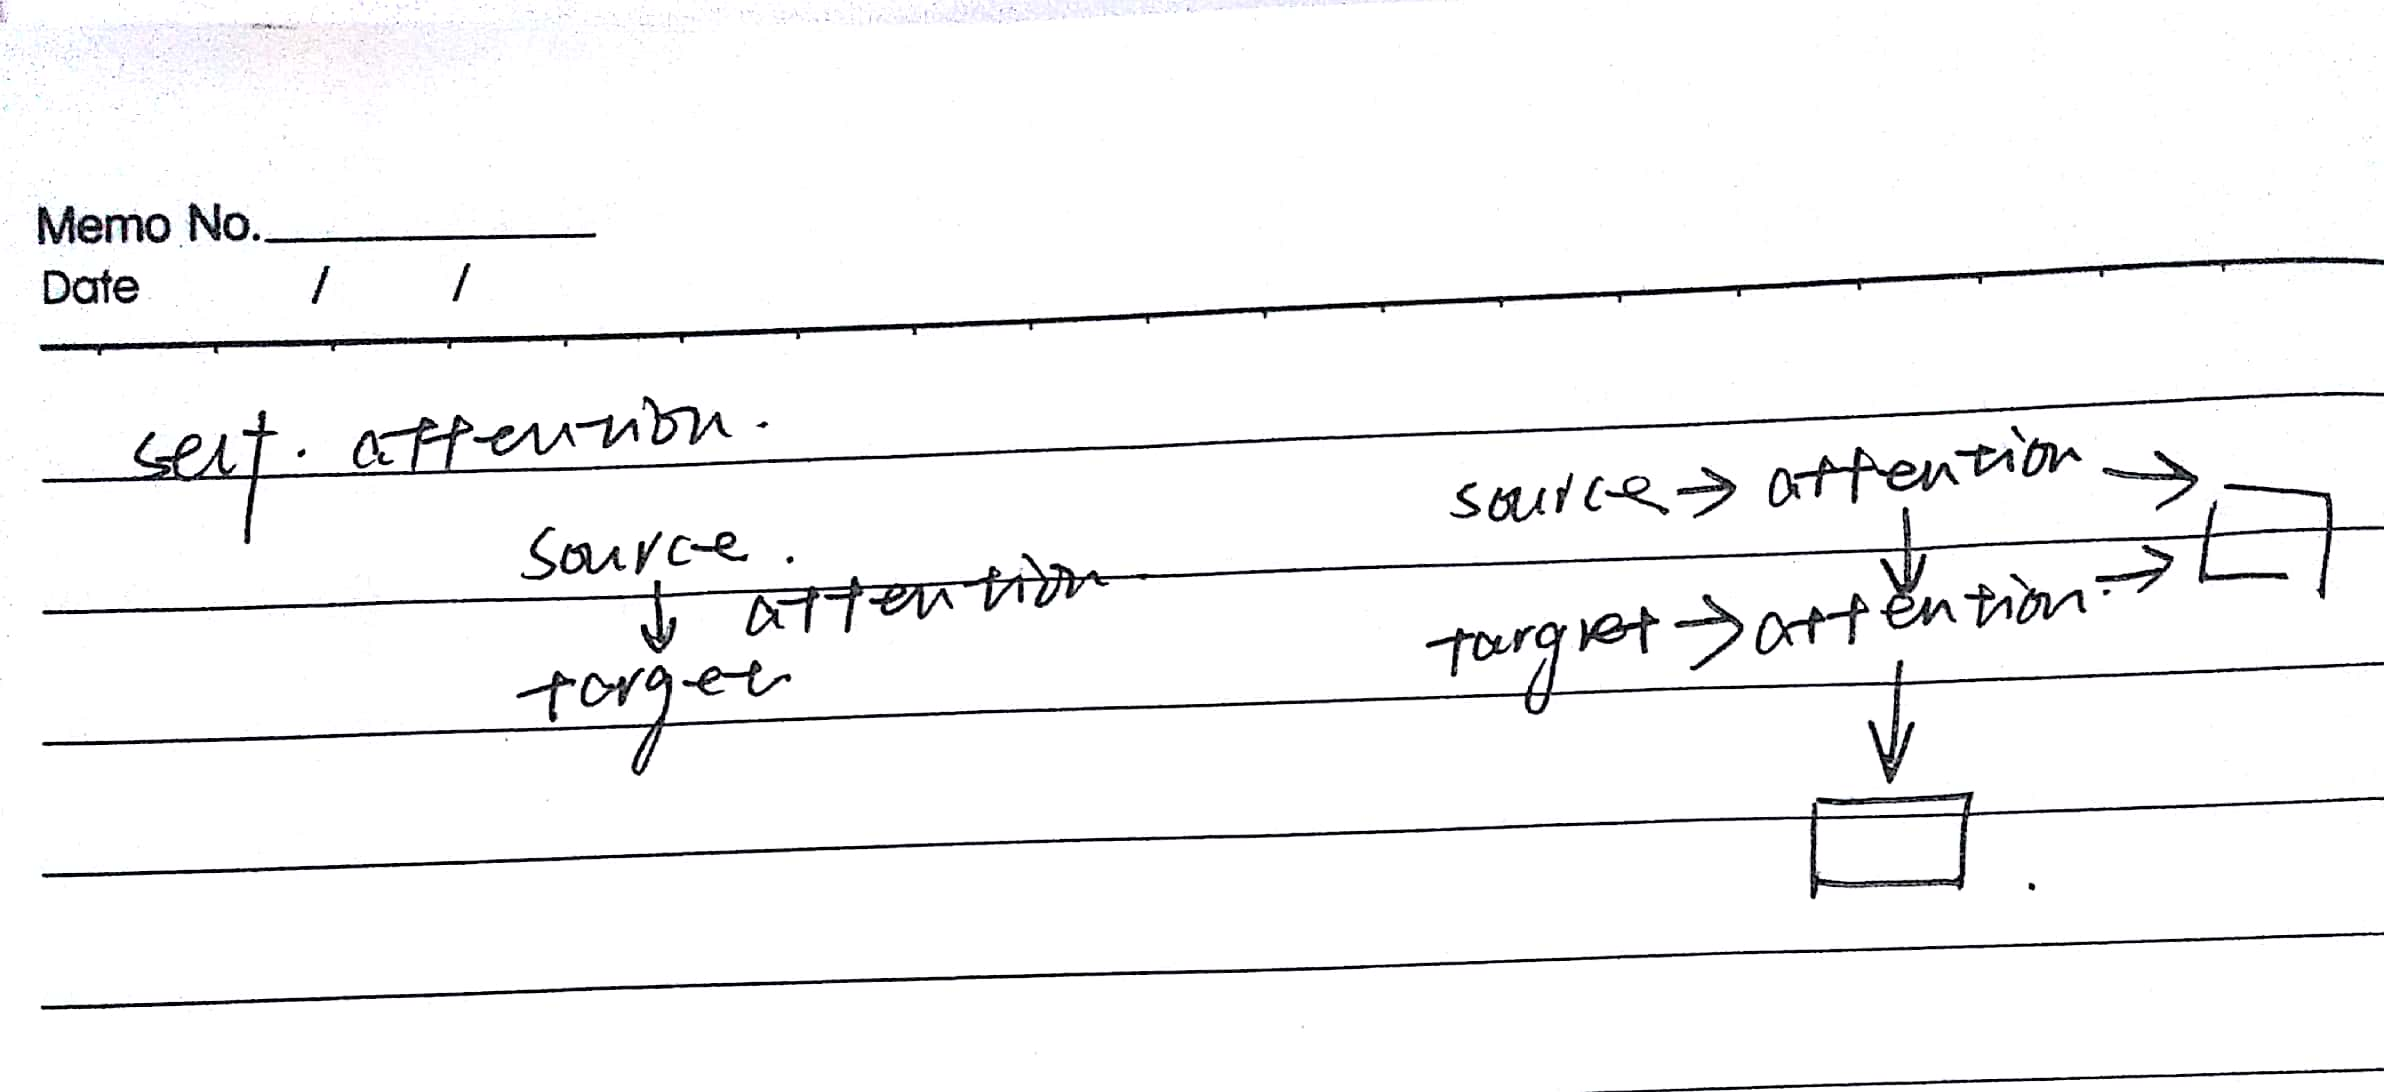 Memo No.
Date / /
self. attention.
source → attention →
source.
↓ attention
target
target → attention. →